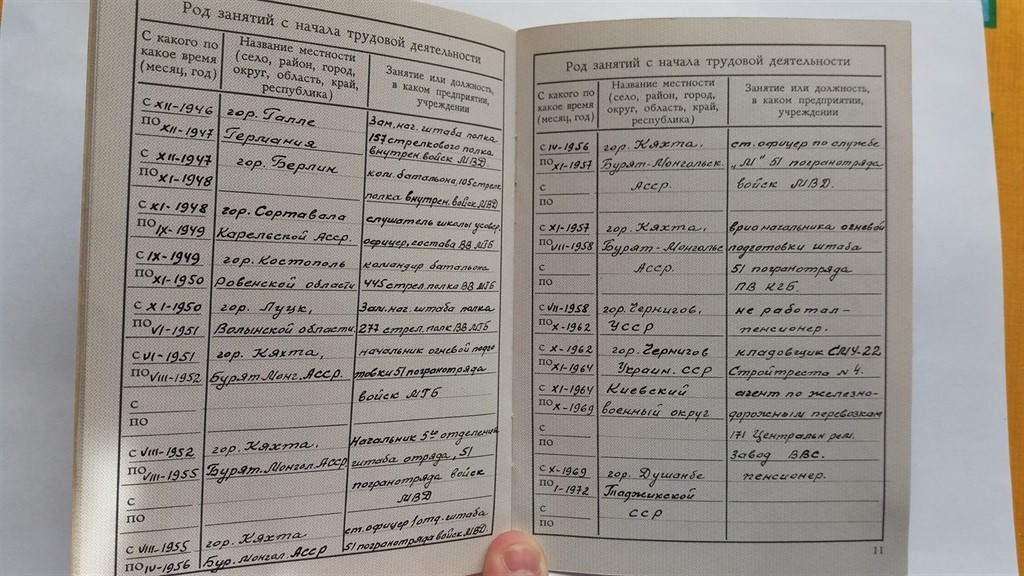 Род занятий с начала трудовой деятельности
С какого по какое время (месяц, год)
Название местности (село, район, город, округ, область, край, республика)
Занятие или должность, в каком предприятии, учреждении
с XII-1946
по XII-1947
гор. Галле
Германия
Зам. нач. штаба полка
157 стрелкового полка
внутрен. войск МВД
с XII-1947
по XI-1948
гор. Берлин
ком. батальона, 105 стрелк.
полка внутрен. войск МВД
с XI-1948
по IX-1949
гор. Сортавала
Карельской Асср.
слушатель школы усовер.
офицер. состава ВВ МГБ
с IX-1949
по XI-1950
гор. Костополь
Ровенской области
командир батальона
445 стрел. полка ВВ МГБ
с XI-1950
по VI-1951
гор. Луцк,
Волынской области
Зам. нач. штаба полка
277 стрел. полк ВВ МГБ
с VI-1951
по VIII-1952
с
по
гор. Кяхта,
Бурят. Монг. Асср.
начальник огневой подго
товки 51 погранотряда
войск МГБ
с VIII-1952
по VIII-1955
с
по
гор. Кяхта,
Бурят. Монгол. Асср
Начальник 5го отделения
штаба отряда, 51
погранотряда войск
МВД
с VIII-1955
по IV-1956
гор. Кяхта
Бур. Монгол. Асср
ст. офицер 1 отд. штаба
51 погранотряда войск МВД.
Род занятий с начала трудовой деятельности
С какого по какое время (месяц, год)
Название местности (село, район, город, округ, область, край, республика)
Занятие или должность, в каком предприятии, учреждении
с IV-1956
по XI-1957
с
по
гор. Кяхта,
Бурят-Монгольск
Асср.
ст. офицер по службе
„М" 51 погранотряда
войск МВД.
с XI-1957
по VIII-1958
с
по
гор. Кяхта,
Бурят-Монгольс
Асср.
врио начальника огневой
подготовки штаба
51 погранотряда
ПВ КГБ.
с VII-1958
по X-1962
гор. Чернигов,
УССР
не работал-
пенсионер.
с X-1962
по XI-1964
гор. Чернигов
Украин. ССР
кладовщик СМУ-22
Стройтреста №4.
с XI-1964
по X-1969
с
по
Киевский
военный округ
агент по железно-
дорожным перевозкам
171 Центральн рем.
Завод ВВС.
с X-1969
по I-1972
с
по
гор. Душанбе
Таджикской
ССР
пенсионер.
11